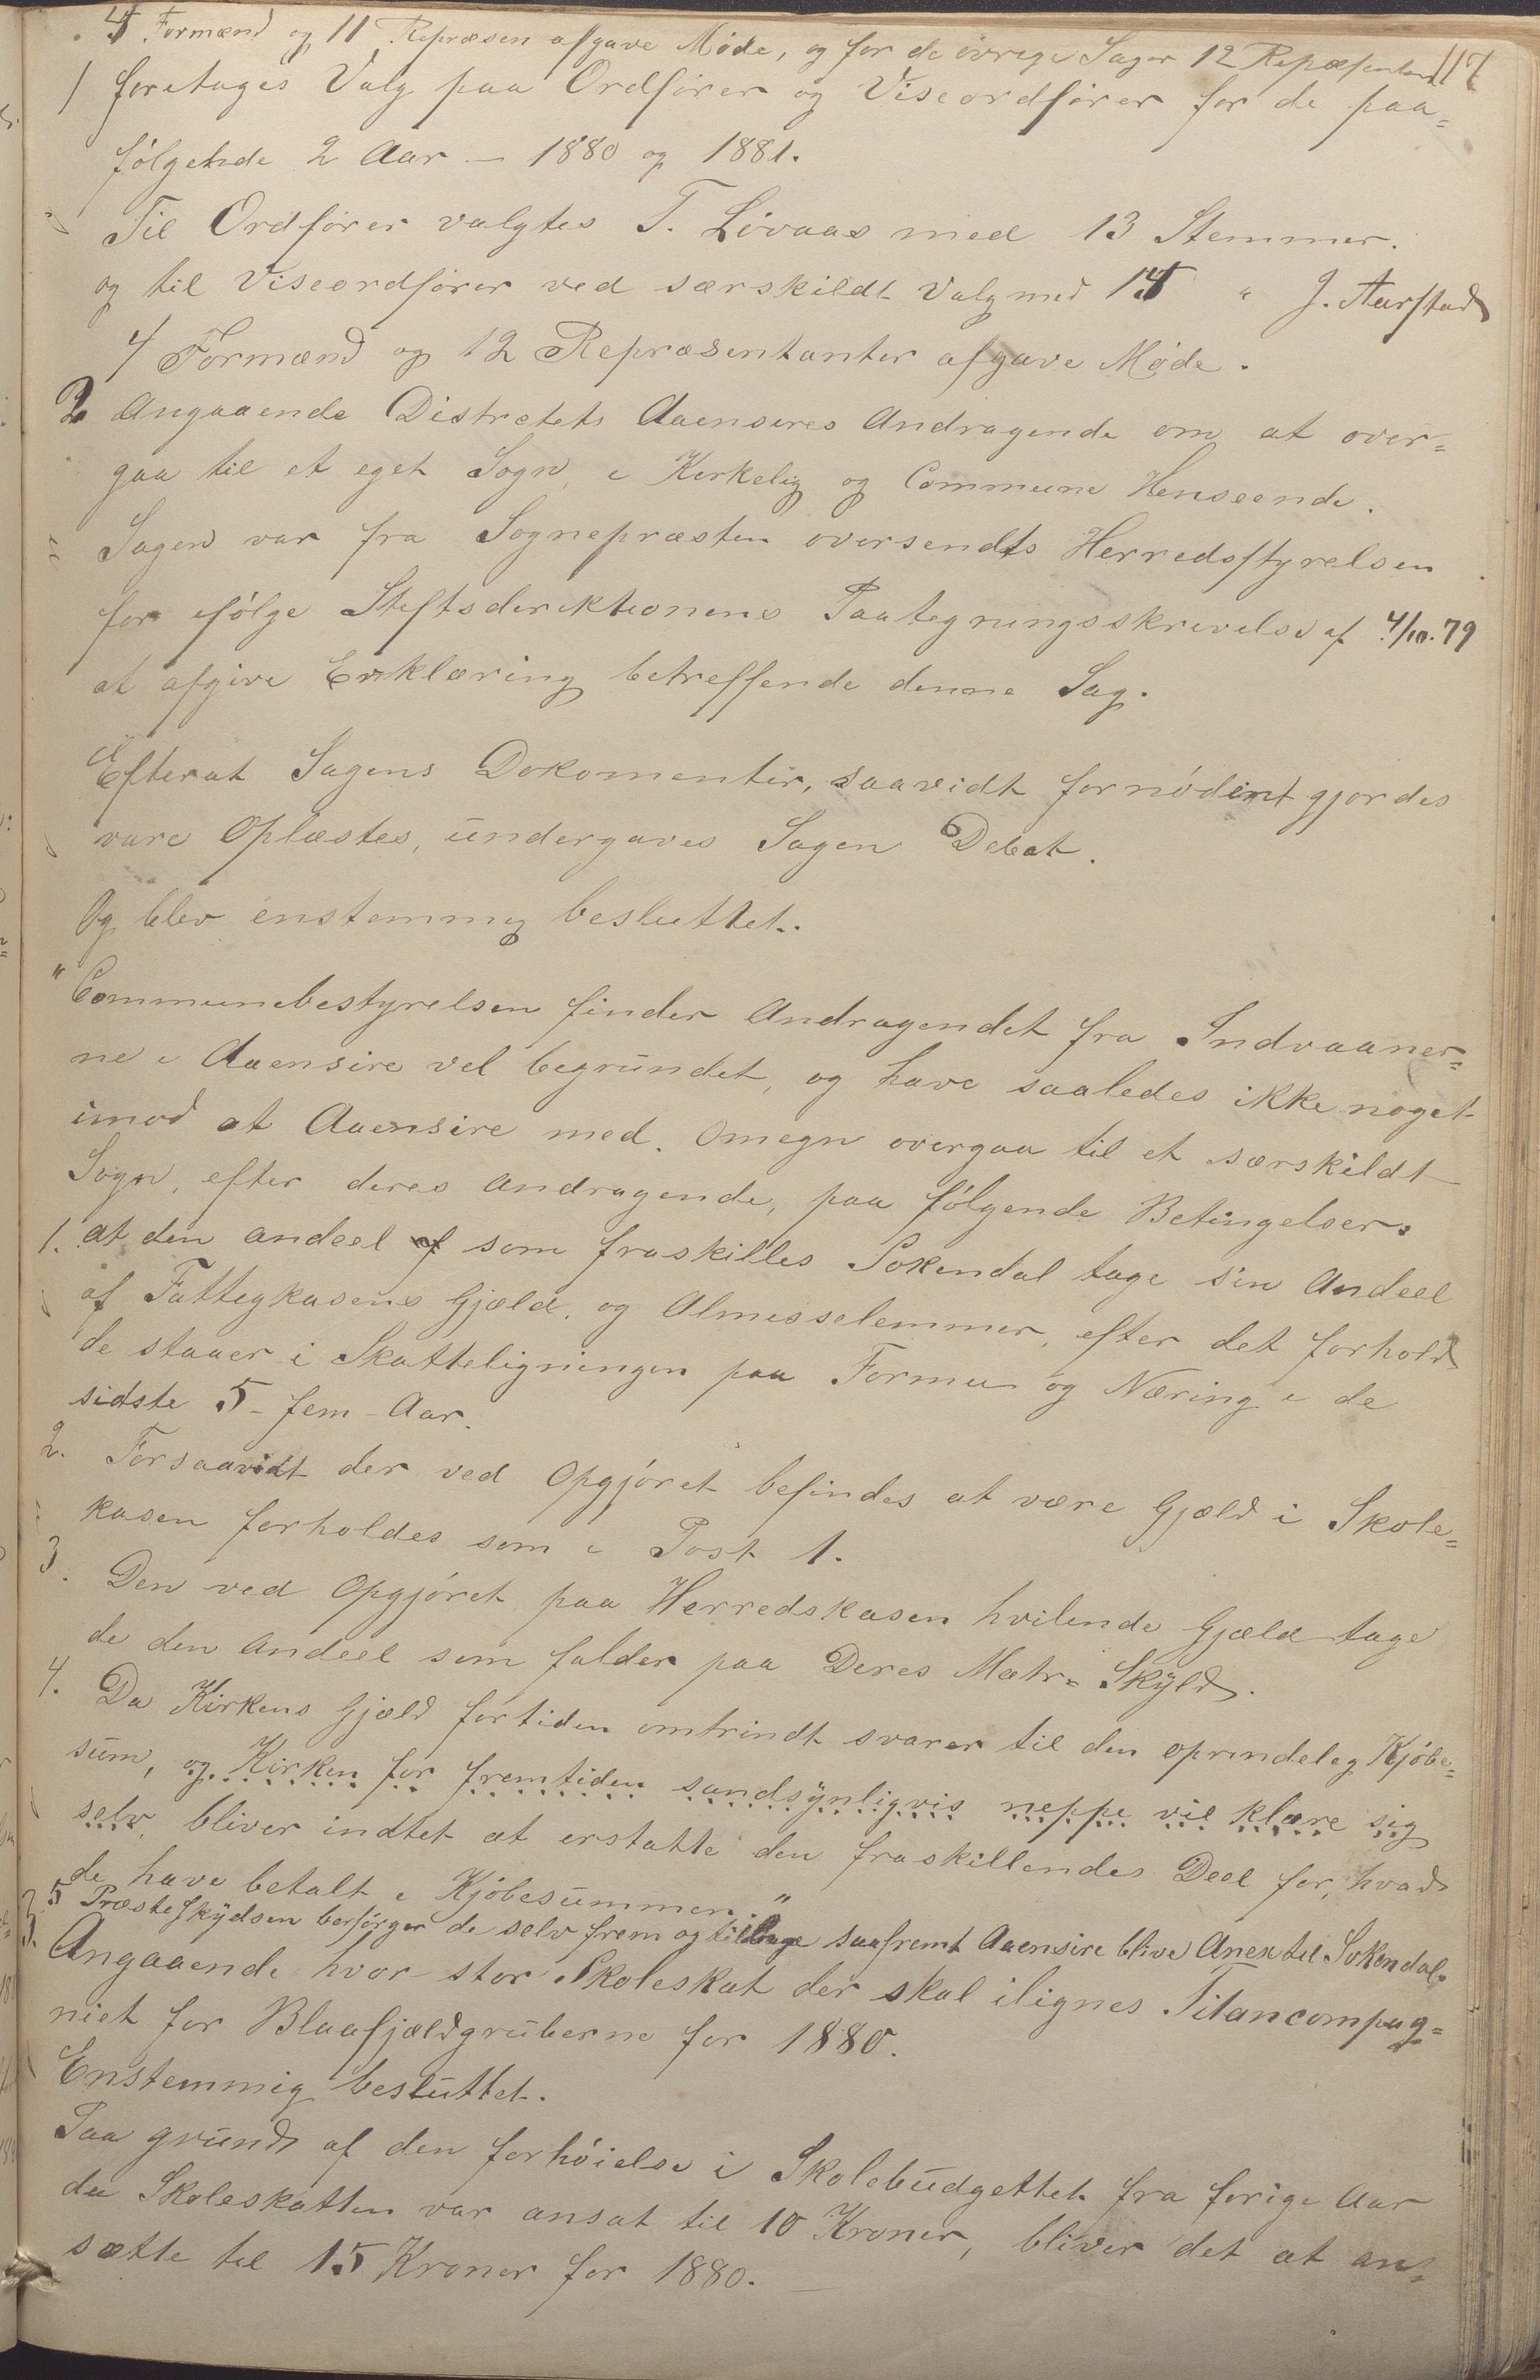 4 Formænd og 11 Repræsen afgave Møde, og for de øvrige Sager 12 Repæsentant 117
1 foretages Valg paa Ordfører og Viseordfører for de paa=
følgende 2 Aar — 1880 og 1881.
Til Ordfører valgtes T. Løvaas med 13 Stemmer.
og til Viseordfører ved særskildt Valg med 14 " J. Aarstad
4 Formænd og 12 Repræsentanter afgave Møde.
2 Angaaende Distretets Aaensires Andragende om at over=
gaa til et eget Sogn, i Kirkelig og Commune Henseende.
Sagen var fra Sognepræsten oversendts Herredsstyrelsen
for ifølge Stiftsdirektionens Paategningsskrivelse af 4/10.79
at afgive Erklæring betreffende denne Sag.
Efterat Sagens Dokomenter, saavidt fornødent gjordes
vare Oplæstes, undergaves Sagen Debat.
Og blev enstemmig besluttet.
"Communebestyrelsen finder Andragendet fra Indvaaner=
ne i Aaensire vel begrundet, og have saaledes ikke noget
imod at Aaensire med Omegn overgaa til et særskildt
Sogn, efter deres Andragende, paa følgende Betingelser.
1. at den Andeel af som fraskilles Sokendal tage sin Andeel
af Fattigkasens Gjæld, og Almisselemmer, efter det forhold
de staaer i Skatteligningen paa Formue og Næring i de
sidste 5 - fem - Aar.
2. Forsaavidt der ved Opgjøret befindes at være Gjæld i Skole=
kasen forholdes som i Post 1.
3. Den ved Opgjøret paa Herredskasen hvilende Gjæld tage
de den Andeel som falder paa Deres Matr. Skyld.
4. Da Kirkens Gjæld fortiden omtrindt svarer til den oprindeleg Kjøbe=
sum, og Kirken for fremtiden sandsynligvis neppe vil klare sig
selv, bliver indtet at erstatte den fraskillendes Deel for, hvad
de have betalt i Kjøbesummen."
5 Præsteskydsen besørger de selv frem og tilbage saafremt Aaensire blive Anex til Sokendal.
3. Angaaende hvor stor Skoleskat der skal ilignes Titancompag=
niet for Blaafjældgruberne for 1880.
Enstemmig besluttet.
Paa grund af den forhøielse i Skolebudgettet fra forige Aar
da Skoleskatten var ansat til 10 Kroner, bliver det at an=
sætte til 15 Kroner for 1880. —